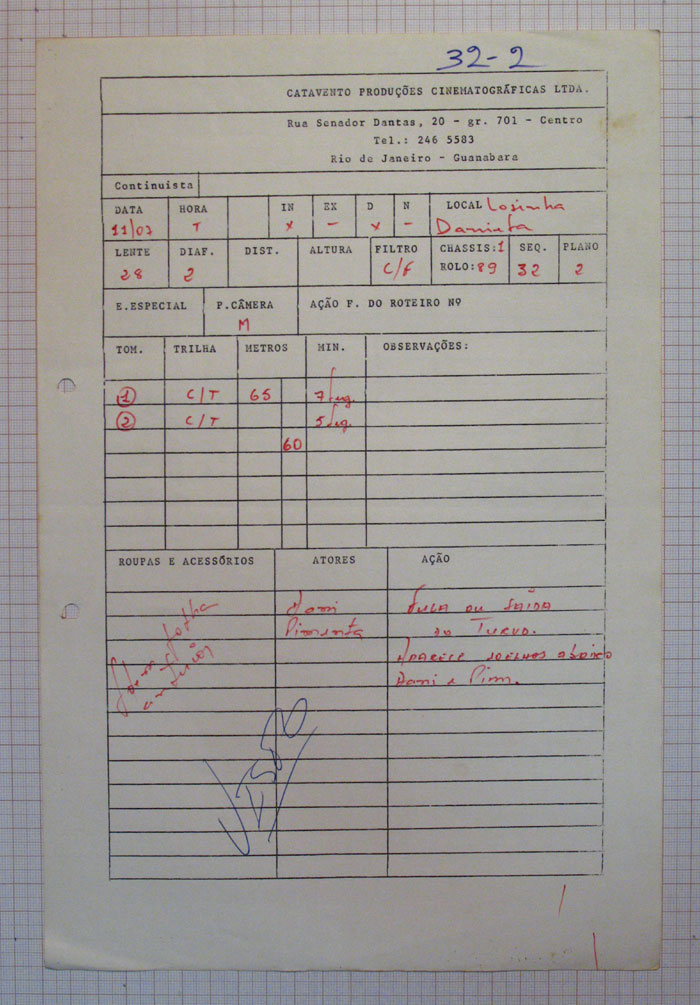 32-2
CATAVENTO PRODUÇÕES CINEMATOGRÁFICAS LTDA.
Rua Senador Dantas, 20 - gr. 701 - Centro
Tel.: 246 5583
Rio de Janeiro - Guanabara
Continuista
DATA HORA IN EX D N LOCAL
11/07 T x - x -
LENTE DIAF. DIST. ALTURA FILTRO CHASSIS:1 SEQ. PLANO
28 2 C/F ROLO:89 32 2
E.ESPECIAL P.CÂMERA AÇÃO F. DO ROTEIRO Nº
M
TOM. TRILHA METROS MIN. OBSERVAÇÕES:
1 C/T 65 7 seg.
2 C/T 5 seg.
60
ROUPAS E ACESSÓRIOS ATORES AÇÃO
folha Pimenta ou SAÍDA
anterior do TURVO.
APARECE JOELHOS ABAIXO
Dani e Pim.
VISTO